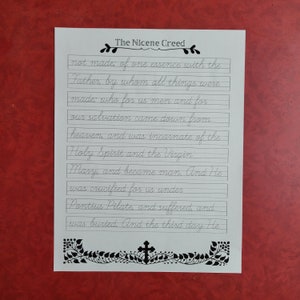 The Nicene Creed
not made; of one essence with the
Father, by whom all things were
made; who for us men and for
our salvation came down from
heaven, and was incarnate of the
Holy Spirit and the Virgin
Mary, and became man. And He
was crucified for us under
Pontius Pilate, and suffered, and
was buried. And the third day He